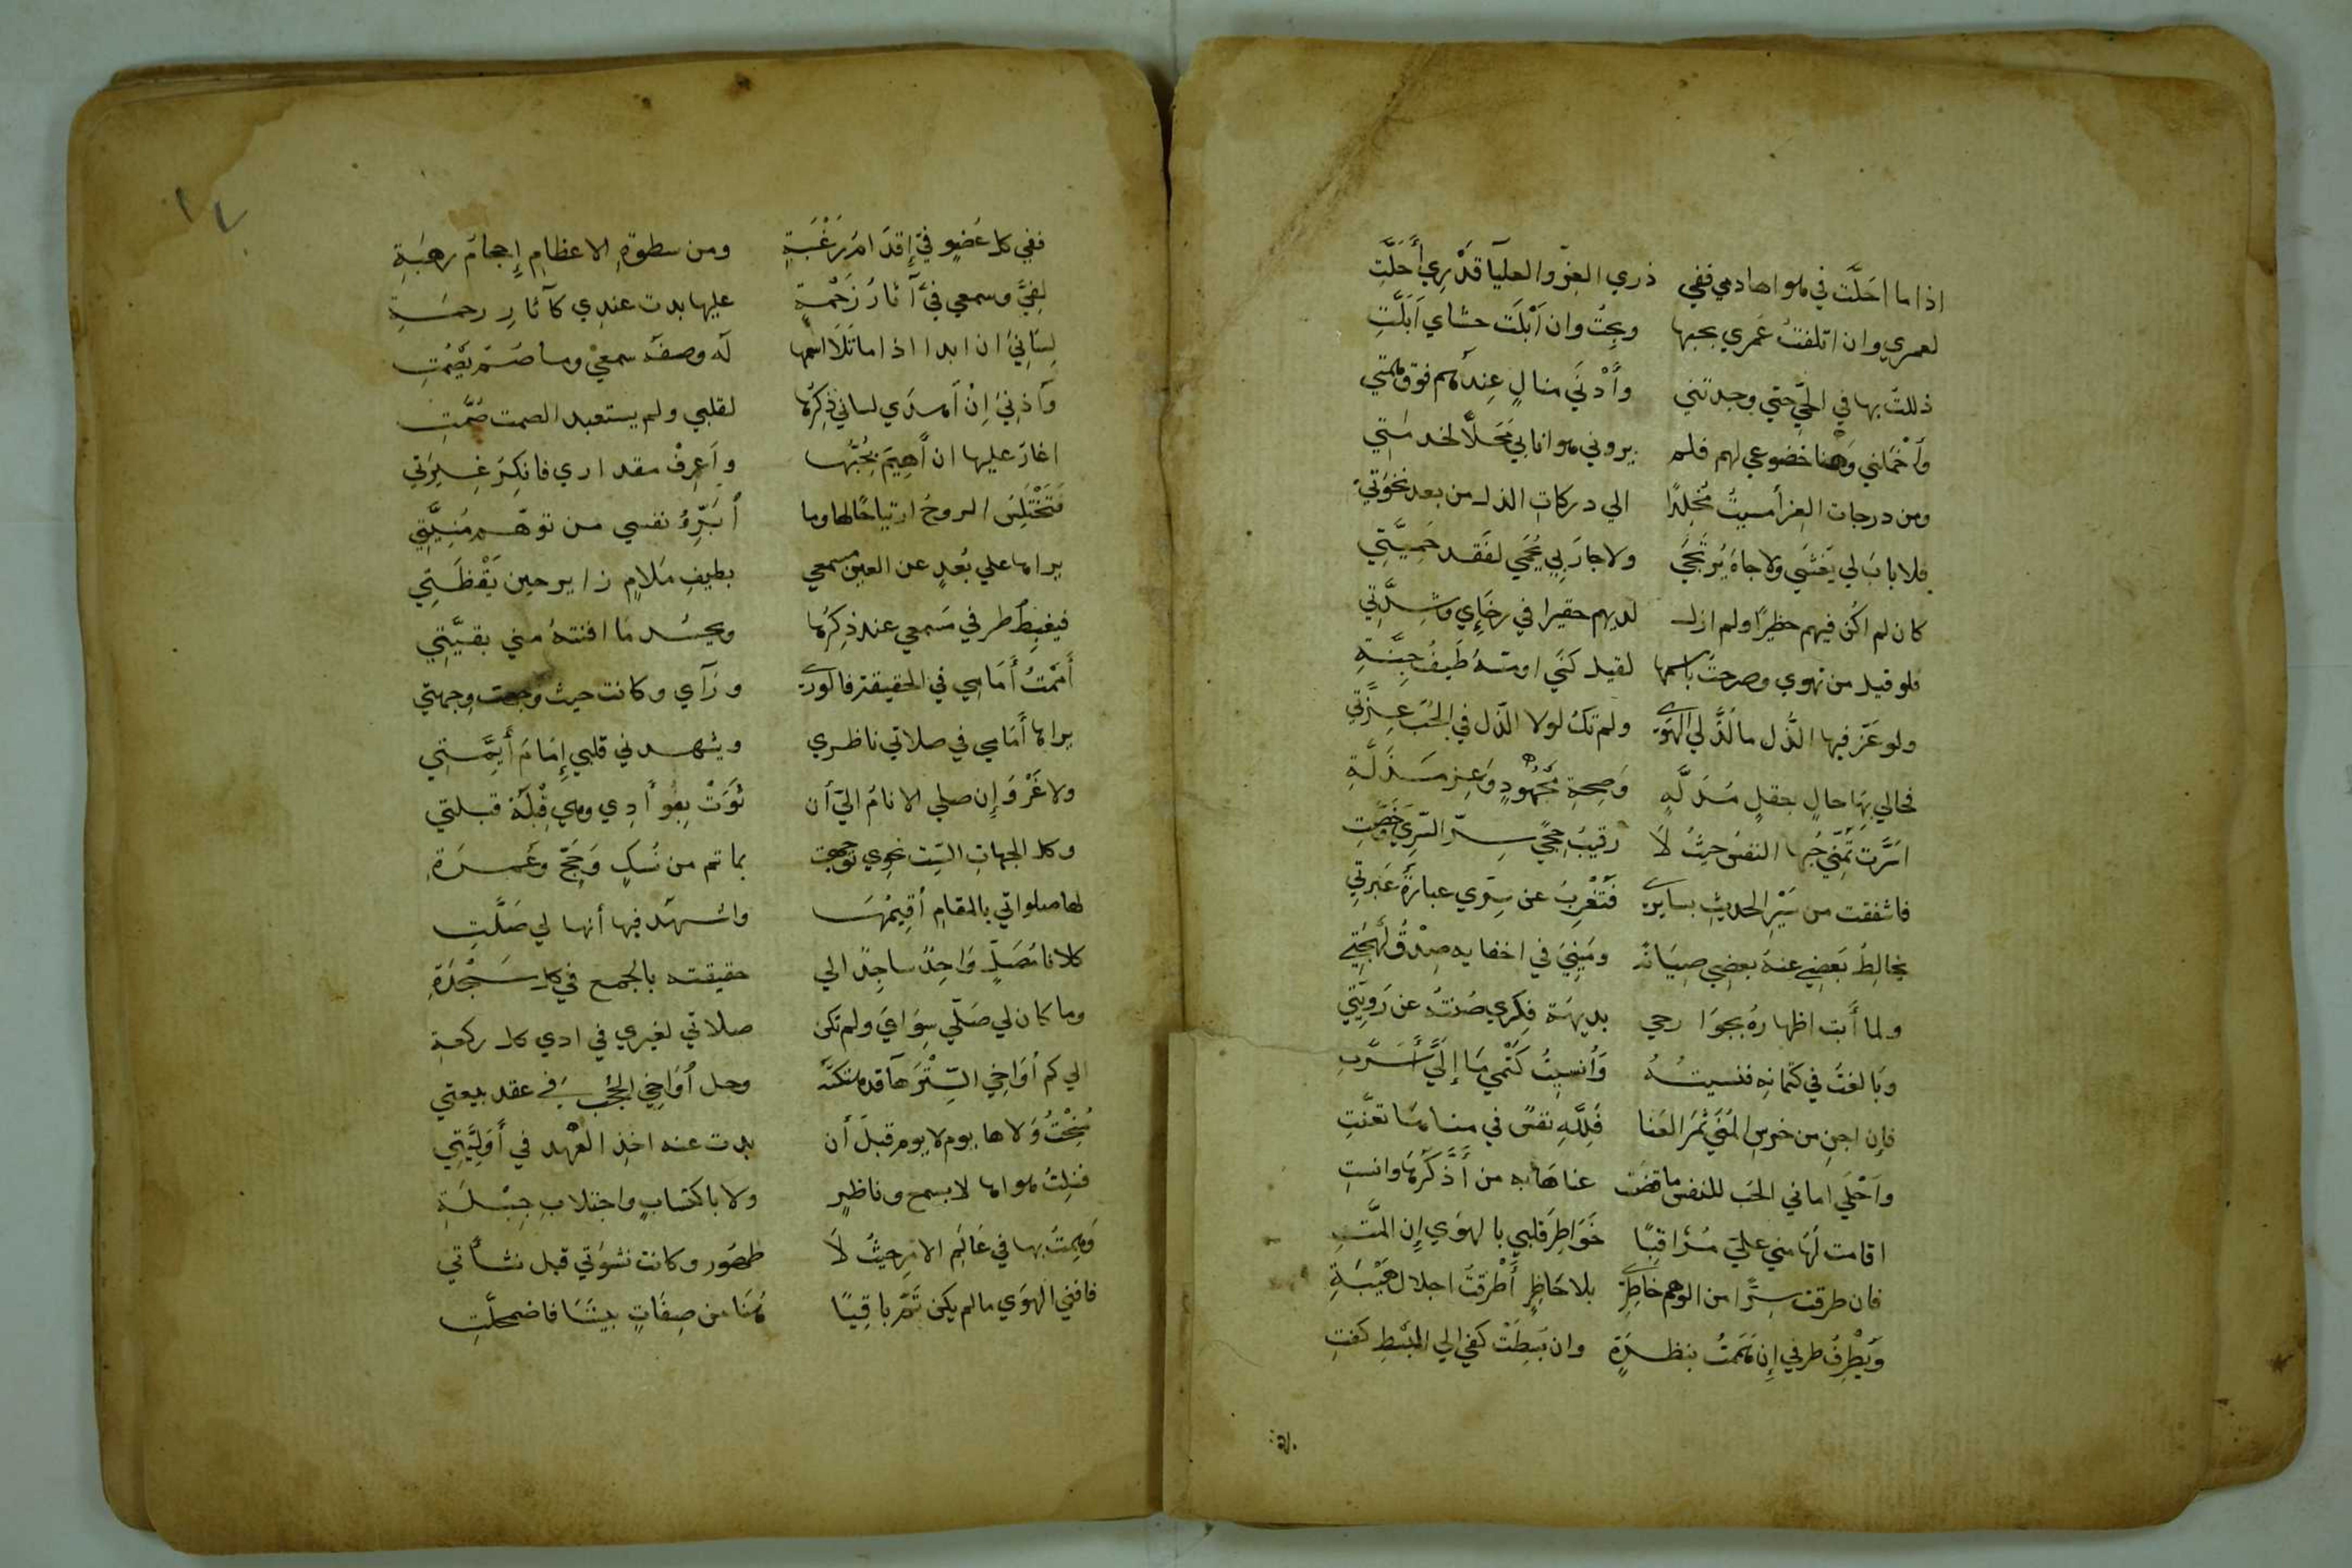 اذا ما احَلَّت في هواها دمي ففي ذري العز والعليآ قَدْرِي أَحَلَّتِ
لعمري وان اتلفتُ عُمري بحبها وبحتُ وان اَبْلَت حشاي اَبَلَّتِ
ذللتُ بها في الحَيّ حتي وجدتني وأَدْنَي منالٍ عِندهُم فوق همتي
وَأَخْمَلني وَهْنا خضوعي لهم فلم يروني هوانا بي مَحَلّا لخدمَتي
ومن درجات العز أمسيتُ مُخْلِدًا الي دركاتِ الذل من بعد نخوَتي
فلا بابَ لي يَغْشَي ولا جاهَ يُرتَجَي ولا جارَ لي يُحْمَي لفَقد حَمِيَّتِي
كان لم اكُن فيهم خطيرًا ولم ازل لديهم حقيرا في رخَآيِ وشِدَّتِي
فلو قيل من تهوي وصرحتُ باسمها لقيل كنَي او مسَّهُ طَيفُ جِنَّةِ
ولو عَزَّ فيها الذُّل ما لَذَّ لي الهَوَي ولم تكُ لولا الذّل في الحُبّ عِزَّتِي
فحالي بهَا حالٍ بعقلٍ مُدَلَّهٍ وَصِحةِ مَجْهُودٍ وَعِز مَذَلَّةِ
اسَرَّت تَمَنّي حُبها النفسُ حيثُ لَا رقيبُ حِجًي سِرّا لسِّرِي وَخَصَّتِ
فاشفقت من سَيْرِ الحديثِ بسايرِي فَتُعْرِبُ عن سِرّي عبارةُ عَبرتِي
يخالِطُ بَعضِي عنهُ بعضِي صِيَانَة ومَينِيَ في اخفايه صِدْقُ لَهْجَتِي
ولما أَبت اظهارهُ بجوَارحي بديهَةُ فِكرِي صُنتهُ عن رَوِيَّتِي
وَبالغتُ في كتمانِهِ فنسيتُهُ وَاُنسِيتُ كَتْمِي مَا إِلَيَّ أَسَرَّتِ
فإن اجنِ من غرسِ المُنَي ثمرَ العَنا فَلِلَّهِ نفسٌ في مناهَا تعنَّتِ
واَحْلَي اماني الحُب للنفسِ ما قضت عناهَا به من أَذْكَرَهَا وانستِ
اقامت لَهَا مني عليَّ مُرَاقبًا خَوَاطِرَ قلبي بالهوَي إِن المَّتِ
فان طرقت سِرًّا من الوهم خاطِرِي بلا خاطِرٍ أَطْرَقتُ اجلالَ هَيْبَةِ
وَيُطْرِفُ طرفي إِن هَمَمتُ بنظرَةٍ وان بُسِطَتْ كفي الي البَسْطِ كفتِ
ففي كل عُضوٍ فِيَّ إِقدَامُ رَغْبَةٍ ومن سطوةِ الاعظامِ إِحجامُ رهبَةِ
لِفِيَّ وسمعي فِيَّ آثارُ زَحْمَةٍ عليها بدت عندِي كآثارِ رحمَةِ
لِسَانِيَ ان ابدا اذا ما تَلَا اسمها لَه وصفَه سمعي وما صَمَّ يَصْمُتِ
وَأذنِيَ إِنْ أهدَي لساني ذِكرَها لقلبي ولم يستعبد الصمت صُمَّتِ
اغارُ عليها ان أَهِيمَ بِحُبِّها واَعرِفُ مقداري فانكِرُ غيرَتي
فَتَخْتَلِسُ الروحُ ارتياحًا لها وما أُبَرِّئُ نفسي من توهّمِ مُنيَّتِي
يراها علي بُعدٍ عن العين مسمعي بطيفِ مَلامٍ زايرٍ حين يَقْظَتِي
فيغبِطُ طرفي مَسمعي عند ذِكرُها ويحسُد مَا افنتهُ مني بقيَّتِي
أَممْتُ أَمَامِي في الحقيقة فالورَي ورَآي وكانت حيث وجهت وِجهتي
يراها أَمَامِي في صلاتي ناظري ويشهدني قلبي إِمَامَ أَيِمَّتِي
ولا غَرْوَ إِن صلي الانامُ اليَّ أن ثَوَتْ بِفُوأَدِي وهي قِبْلَةُ قبلتي
وكل الجهاتِ السّت نحوِي توجهت بما تم من نُسكٍ وَحَجّ وعُمرَةِ
لها صلواتي بالمقامِ أقِيمُهَا واشهَد فيها أنها لي صَلَّتِ
كلانا مُصَلٍّ وَاحِدٌ ساجِدٌ الي حقيقته بالجمعِ في كل سَجْدَةِ
وما كان لي صَلّي سِوَايَ ولم تكن صلاتي لغيري في ادي كل ركعةِ
الي كم أوَاخِي السِّتْرَ هآ قد هتكتُهُ وحل أُوَاخِي الحُجب في عقد بيعتي
مُنِحْتُ وَلاها يوم لا يومَ قبلَ أن بدت عند اخذِ العَهد في أَوَلِيَّتِي
فنِلتُ هواها لا بسمعٍ وناظرٍ ولا باكتسابٍ واجتلابِ جِبْلَةِ
وَهِمتُ بها في عَالَمِ الامرِ حيثُ لَا ظهُور وكانت نشوَتي قبل نشأتي
فافني الهوَي ما لم يكن ثَمَّ باقِيًا هُنَا من صِفَاتٍ بينَنَا فاضمحلَّتِ